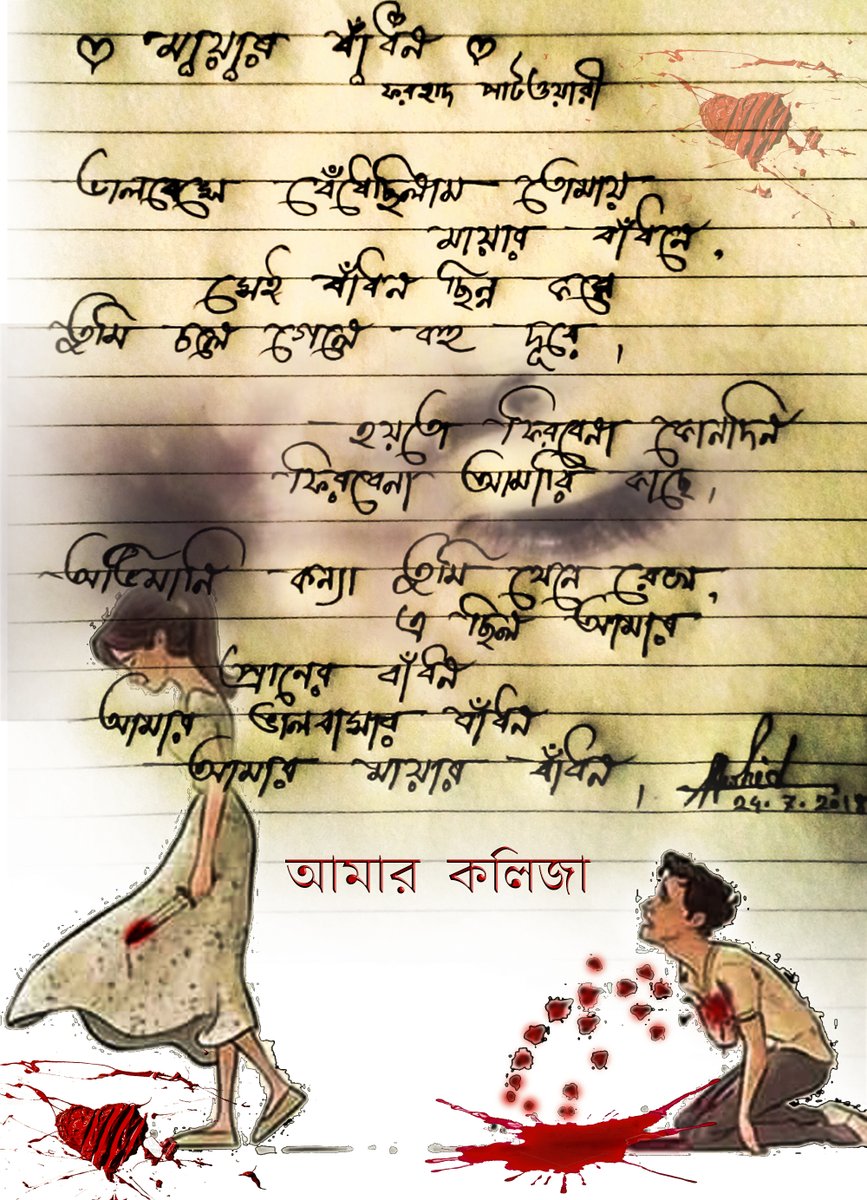 মায়ার বাঁধন
ফরহাদ পাটওয়ারী
ভালবেসে বেঁধেছিলাম তোমায়
মায়ার বাঁধনে,
সেই বাঁধন ছিন্ন করে
তুমি চলে গেলে বহু দূরে,
হয়তো ফিরবেনা কোনদিন
ফিরবেনা আমারি কাছে,
অভিমানি কন্যা তুমি যেনে রেখো,
এ ছিল আমার
প্রানের বাঁধন
আমার ভালবাসার বাঁধন
আমার মায়ার বাঁধন,
24.7.2018
আমার কলিজা